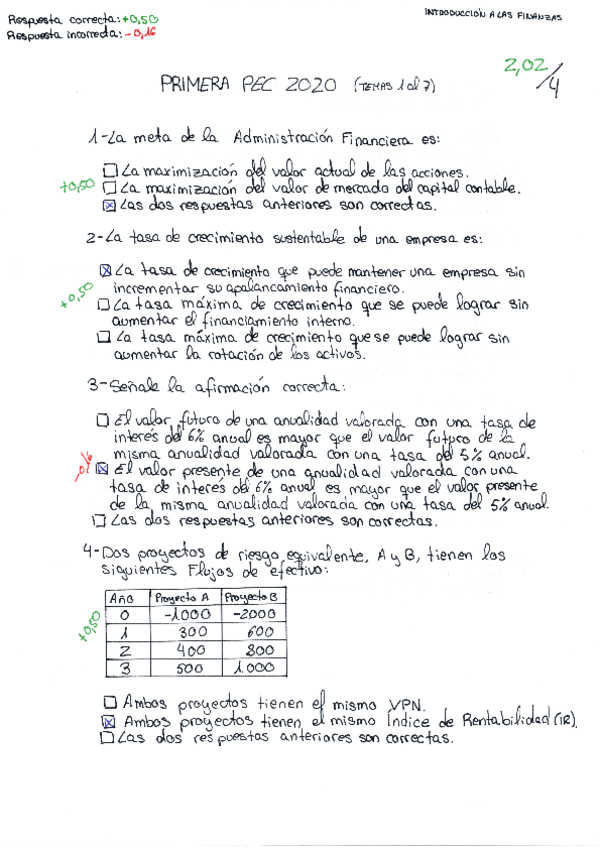 Respuesta correcta: +0,50
Respuesta incorrecta: -0,16
INTRODUCCIÓN A LAS FINANZAS
2,02/4
PRIMERA PEC 2020 (TEMAS 1 al 7)
1-La meta de la Administración Financiera es:
□ La maximización del valor actual de las acciones.
+0,50 □ La maximización del valor de mercado del capital contable.
☒ Las dos respuestas anteriores son correctas.
2-La tasa de crecimiento sustentable de una empresa es:
☒ La tasa de crecimiento que puede mantener una empresa sin
incrementar su apalancamiento financiero.
+0,50 □ La tasa máxima de crecimiento que se puede lograr sin
aumentar el financiamiento interno.
□ La tasa máxima de crecimiento que se puede lograr sin
aumentar la rotación de los activos.
3-Señale la afirmación correcta:
□ El valor futuro de una anualidad valorada con una tasa de
interés del 6% anual es mayor que el valor futuro de la
misma anualidad valorada con una tasa del 5% anual.
-0,16 ☒ El valor presente de una anualidad valorada con una
tasa de interés del 6% anual es mayor que el valor presente
de la misma anualidad valorada con una tasa del 5% anual.
□ Las dos respuestas anteriores son correctas.
4-Dos proyectos de riesgo equivalente, A y B, tienen los
siguientes Flujos de efectivo:
Año Proyecto A Proyecto B
0 -1000 -2000
+0,50 1 300 600
2 400 800
3 500 1.000
□ Ambos proyectos tienen el mismo VPN.
☒ Ambos proyectos tienen el mismo Índice de Rentabilidad (IR).
□ Las dos respuestas anteriores son correctas.